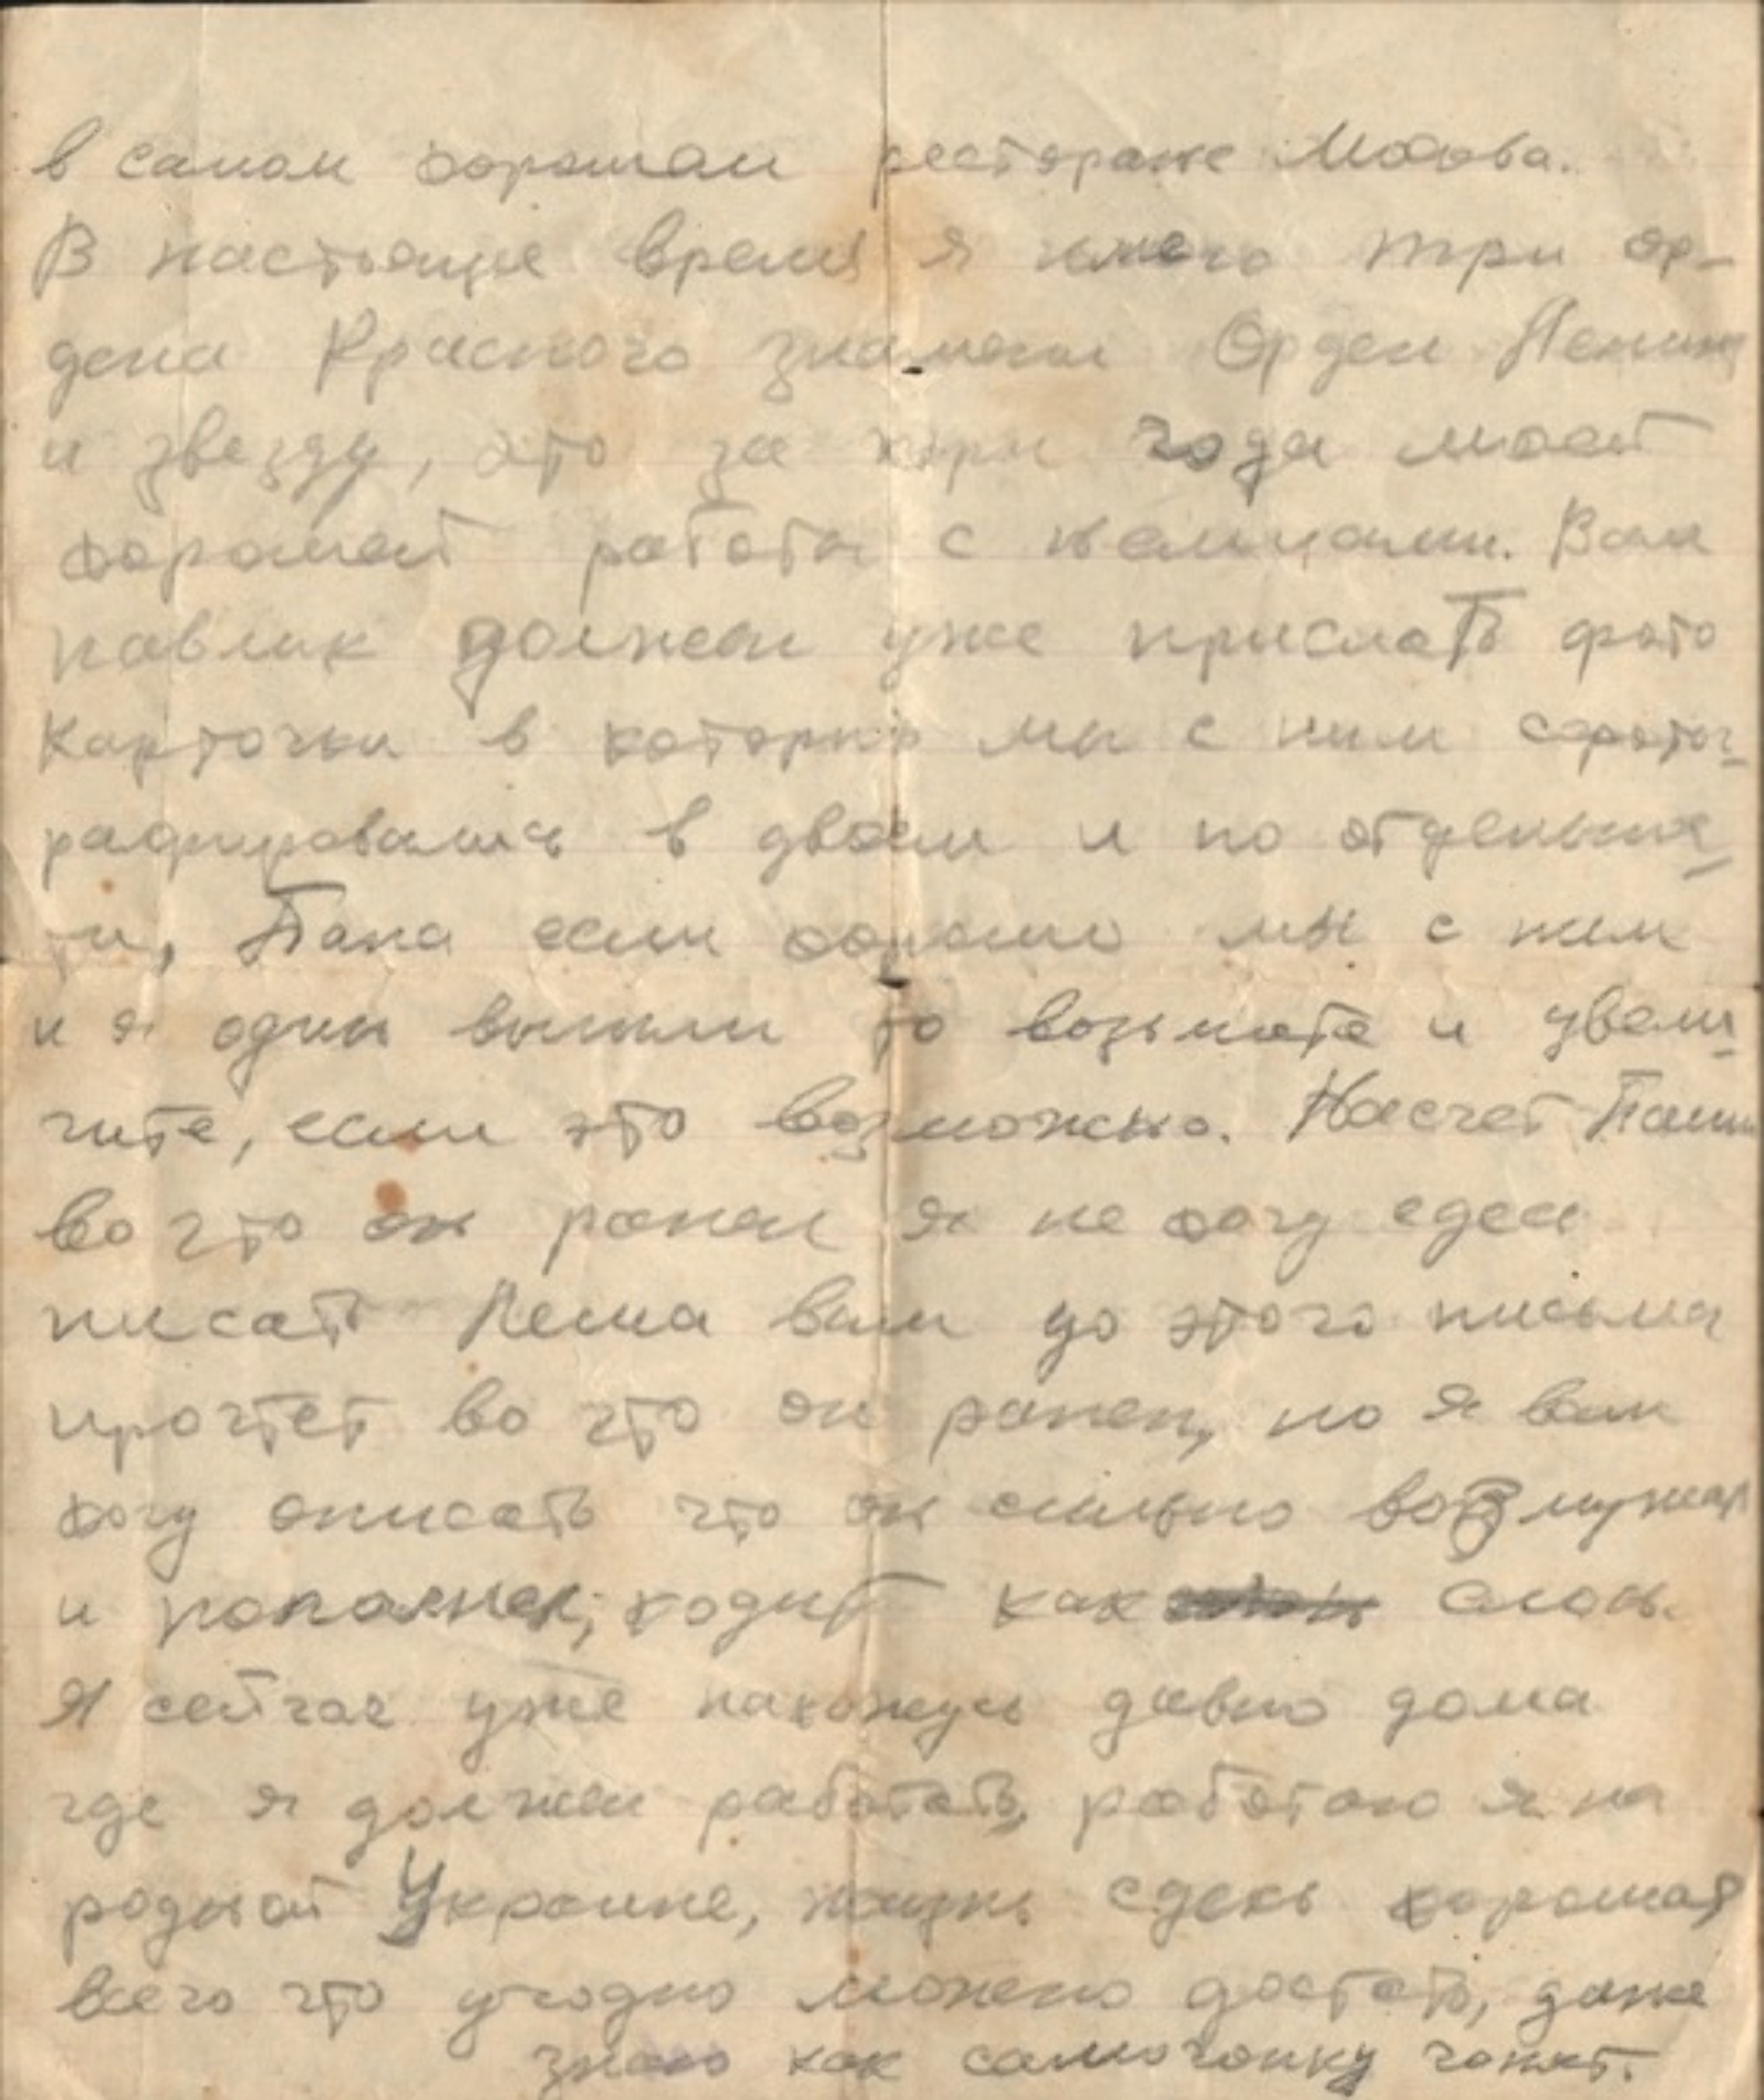 в самом хорошом ресторане Москва.
В настоящие время я имею три ор-
дена Красного знамени Орден Ленина
и звезду, это за три года моей
хорошей работы с немцами. Вам
павлик должен уже прислать фото
карточки в которых мы с ним сфотог-
рафировались в двоем и по отдельнос-
ти, Папа если хорошо мы с ним
и я один вышли то возьмите и увели-
чите, если это возможно. Насчет Паши
во что он ранен я не хочу сдесь
писать Леша вам до этого письма
прочтет во что он ранен, но я вам
хочу описать что он сильно возмужал
и пополнел, ходит как слон.
Я сейчас уже нахожусь давно дома
где я должен работать, работаю я на
родной Украине, жизнь сдесь хорошая
всего что угодно можно достать, даже
знаю как самогонку гонят.